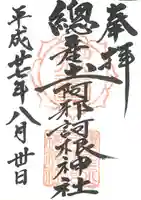 奉拝
總産土阿邪訶根神社
平成廿七年八月卅日